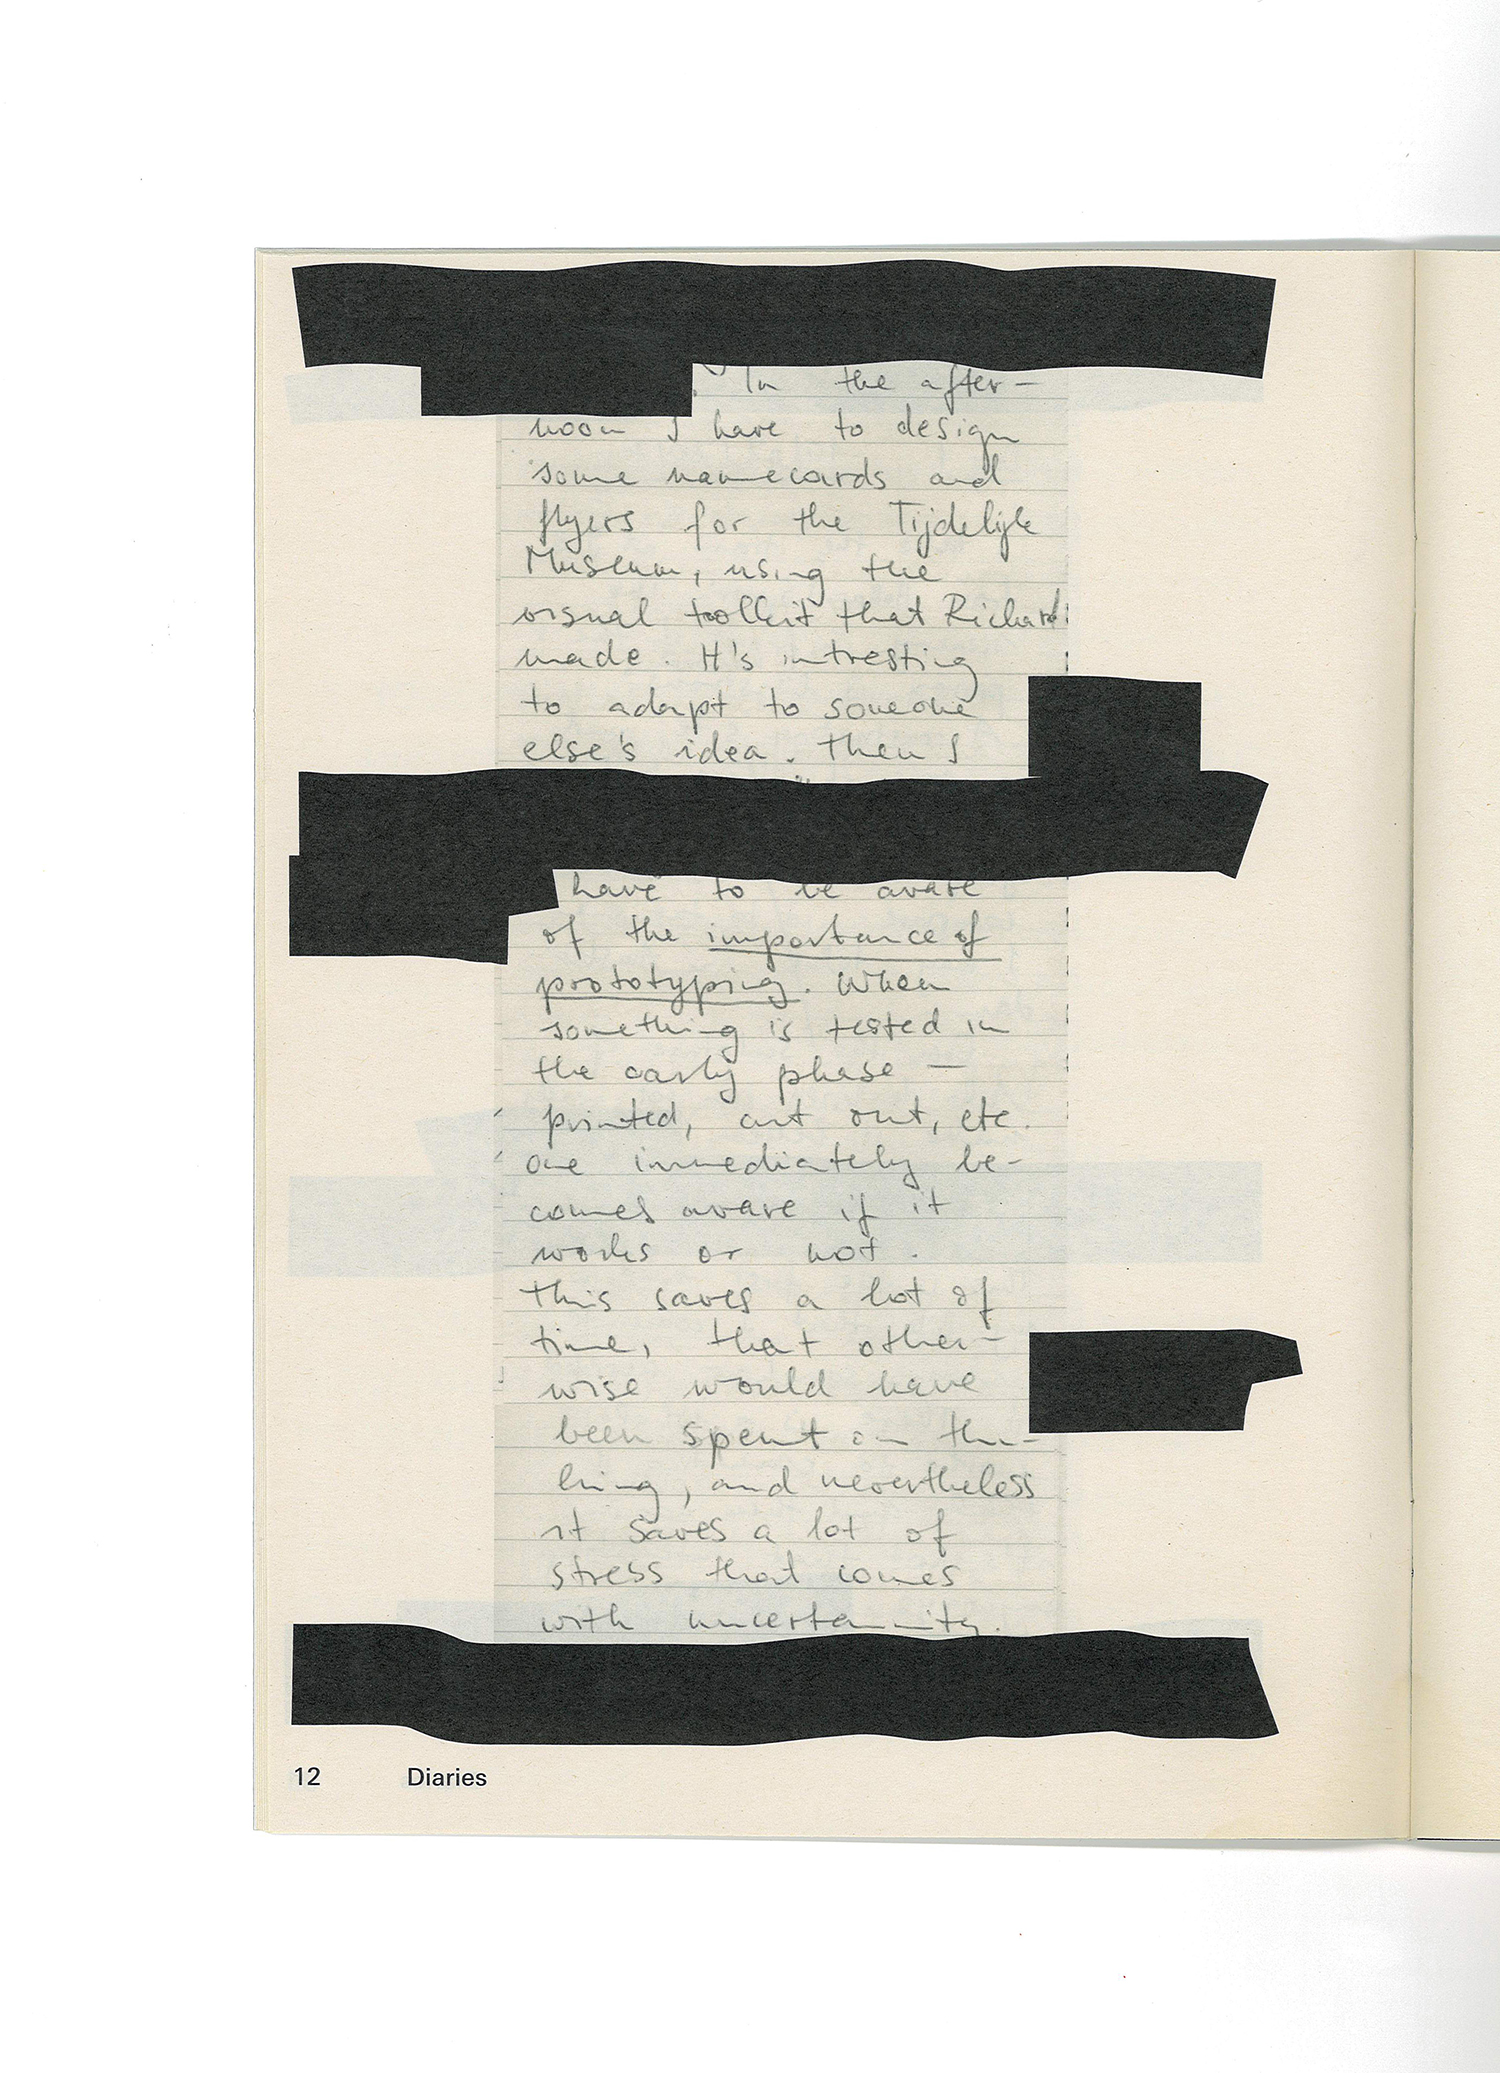 In the after-
noon I have to design
some namecards and
flyers for the Tijdelijk
Museum, using the
visual toolkit that Richard
made. It's intresting
to adapt to someone
else's idea. Then I
have to be aware
of the importance of
prototyping. When
something is tested in
the early phase —
printed, cut out, etc.
one immediately be-
comes aware if it
works or not.
This saves a lot of
time, that other-
wise would have
been spent on thin-
king, and nevertheless
it saves a lot of
stress that comes
with uncertainity.
12 Diaries